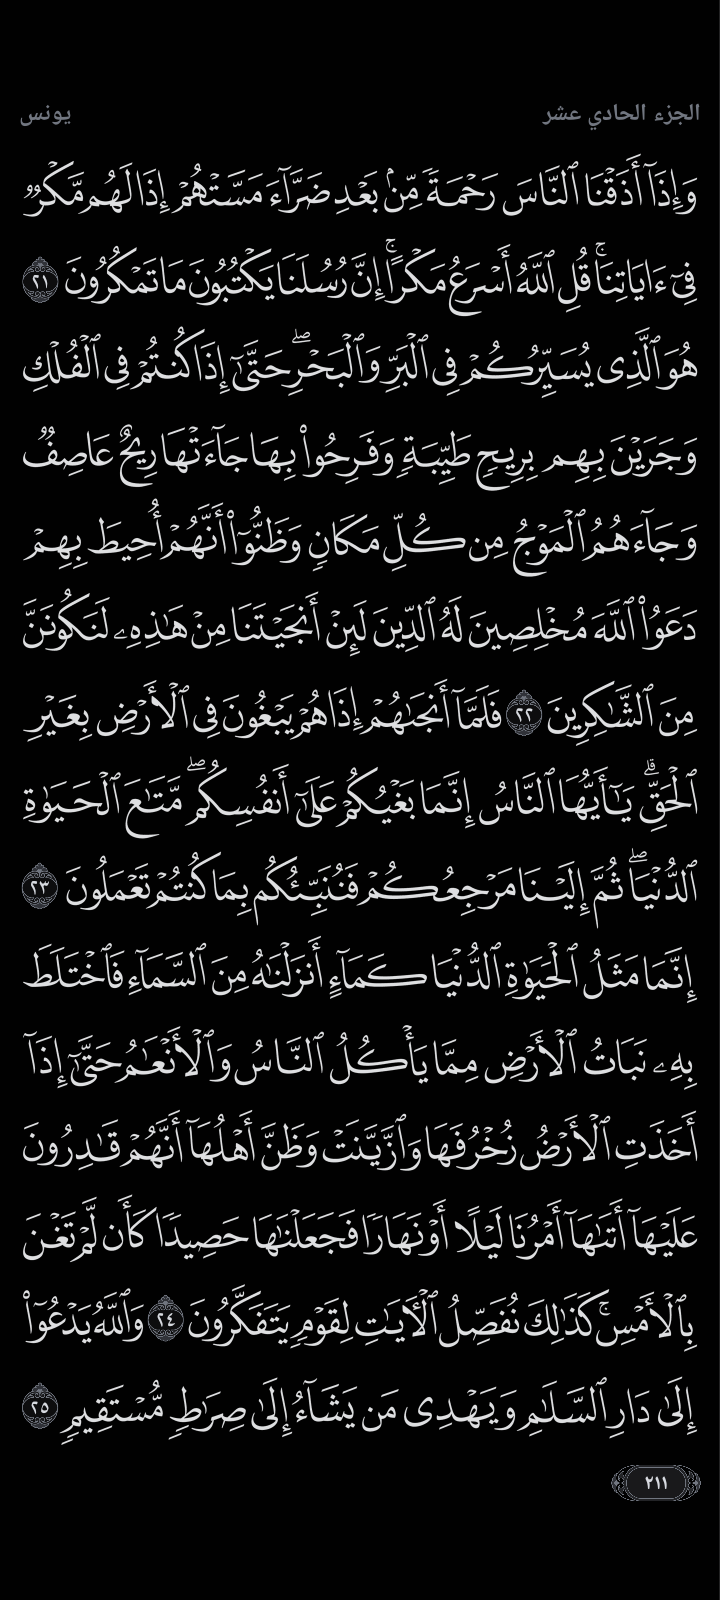 الجزء الحادي عشر
يونس
وَإِذَآ أَذَقْنَا ٱلنَّاسَ رَحْمَةً مِّنۢ بَعْدِ ضَرَّآءَ مَسَّتْهُمْ إِذَا لَهُم مَّكْرٌ
فِىٓ ءَايَاتِنَا ۚ قُلِ ٱللَّهُ أَسْرَعُ مَكْرًا ۚ إِنَّ رُسُلَنَا يَكْتُبُونَ مَا تَمْكُرُونَ ٢١
هُوَ ٱلَّذِى يُسَيِّرُكُمْ فِى ٱلْبَرِّ وَٱلْبَحْرِ ۖ حَتَّىٰٓ إِذَا كُنتُمْ فِى ٱلْفُلْكِ
وَجَرَيْنَ بِهِم بِرِيحٍ طَيِّبَةٍ وَفَرِحُوا۟ بِهَا جَآءَتْهَا رِيحٌ عَاصِفٌ
وَجَآءَهُمُ ٱلْمَوْجُ مِن كُلِّ مَكَانٍ وَظَنُّوٓا۟ أَنَّهُمْ أُحِيطَ بِهِمْ
دَعَوُا۟ ٱللَّهَ مُخْلِصِينَ لَهُ ٱلدِّينَ لَئِنْ أَنجَيْتَنَا مِنْ هَـٰذِهِۦ لَنَكُونَنَّ
مِنَ ٱلشَّـٰكِرِينَ ٢٢ فَلَمَّآ أَنجَىٰهُمْ إِذَا هُمْ يَبْغُونَ فِى ٱلْأَرْضِ بِغَيْرِ
ٱلْحَقِّ ۗ يَـٰٓأَيُّهَا ٱلنَّاسُ إِنَّمَا بَغْيُكُمْ عَلَىٰٓ أَنفُسِكُم ۖ مَّتَـٰعَ ٱلْحَيَوٰةِ
ٱلدُّنْيَا ۖ ثُمَّ إِلَيْنَا مَرْجِعُكُمْ فَنُنَبِّئُكُم بِمَا كُنتُمْ تَعْمَلُونَ ٢٣
إِنَّمَا مَثَلُ ٱلْحَيَوٰةِ ٱلدُّنْيَا كَمَآءٍ أَنزَلْنَـٰهُ مِنَ ٱلسَّمَآءِ فَٱخْتَلَطَ
بِهِۦ نَبَاتُ ٱلْأَرْضِ مِمَّا يَأْكُلُ ٱلنَّاسُ وَٱلْأَنْعَـٰمُ حَتَّىٰٓ إِذَآ
أَخَذَتِ ٱلْأَرْضُ زُخْرُفَهَا وَٱزَّيَّنَتْ وَظَنَّ أَهْلُهَآ أَنَّهُمْ قَـٰدِرُونَ
عَلَيْهَآ أَتَىٰهَآ أَمْرُنَا لَيْلًا أَوْ نَهَارًا فَجَعَلْنَـٰهَا حَصِيدًا كَأَن لَّمْ تَغْنَ
بِٱلْأَمْسِ ۚ كَذَٰلِكَ نُفَصِّلُ ٱلْـَٔايَـٰتِ لِقَوْمٍ يَتَفَكَّرُونَ ٢٤ وَٱللَّهُ يَدْعُوٓا۟
إِلَىٰ دَارِ ٱلسَّلَـٰمِ وَيَهْدِى مَن يَشَآءُ إِلَىٰ صِرَٰطٍ مُّسْتَقِيمٍ ٢٥
٢١١